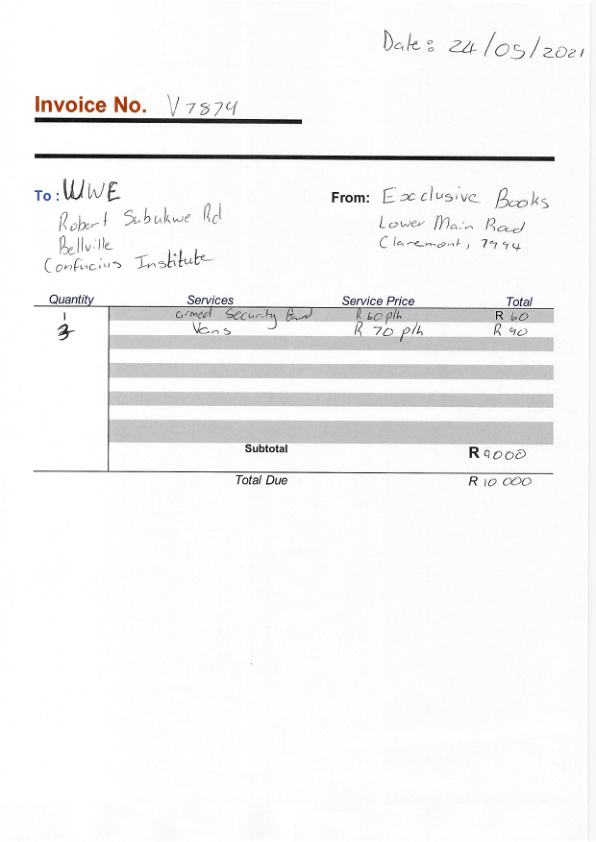 Date: 24/05/2021
Invoice No. V7874
To: WWE
Robert Subukwe Rd
Bellville
Confucius Institute
From: Exclusive Books
Lower Main Road
Claremont, 7944
Quantity Services Service Price Total
1 armed Security R 60 p/h R 60
Vans R 70 p/h R 90
Subtotal R 9000
Total Due R 10 000